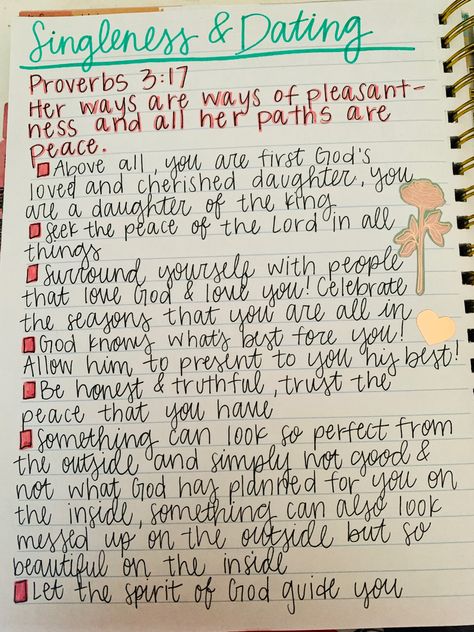 Singleness & Dating
Proverbs 3:17
Her ways are ways of pleasant-
ness and all her paths are
peace.
Above all, you are first God's
loved and cherished daughter, you
are a daughter of the king
Seek the peace of the Lord in all
things
Surround yourself with people
that love God & love you! Celebrate
the seasons that you are all in
God knows what's best fore you!
Allow him to present to you his best!
Be honest & truthful, trust the
peace that you have
Something can look so perfect from
the outside and simply not good &
not what God has planned for you on
the inside, something can also look
messed up on the outside but so
beautiful on the inside
Let the spirit of God guide you